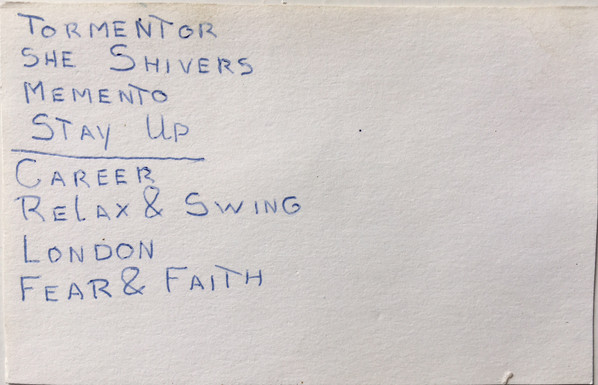 TORMENTOR
SHE SHIVERS
MEMENTO
STAY UP
CAREER
RELAX & SWING
LONDON
FEAR & FAITH